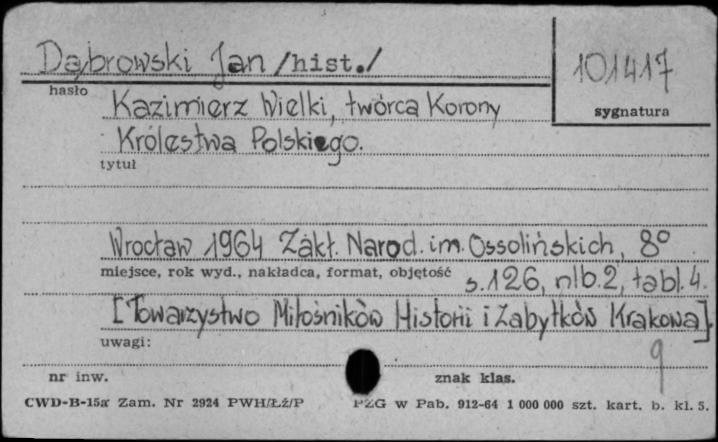 Dąbrowski Jan /hist./
101417
hasło
sygnatura
Kazimierz Wielki, twórca Korony
Królestwa Polskiego.
tytuł
Wrocław 1964 Zakł. Narod. im. Ossolińskich, 8°
miejsce, rok wyd., nakładca, format, objętość
s. 126, nlb. 2, tabl. 4.
[Towarzystwo Miłośników Historii i Zabytków Krakowa].
uwagi:
9
nr inw.
znak klas.
CWD-B-15a Zam. Nr 2924 PWH/Łź/P
PZG w Pab. 912-64 1 000 000 szt. kart. b. kl. 5.